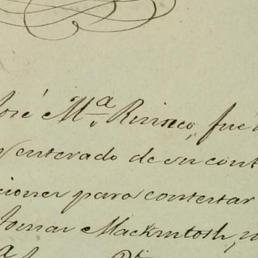 José Mª Rinneo, fue
enterado de su cont
cioner para contestar
Tomas Mackintosh,